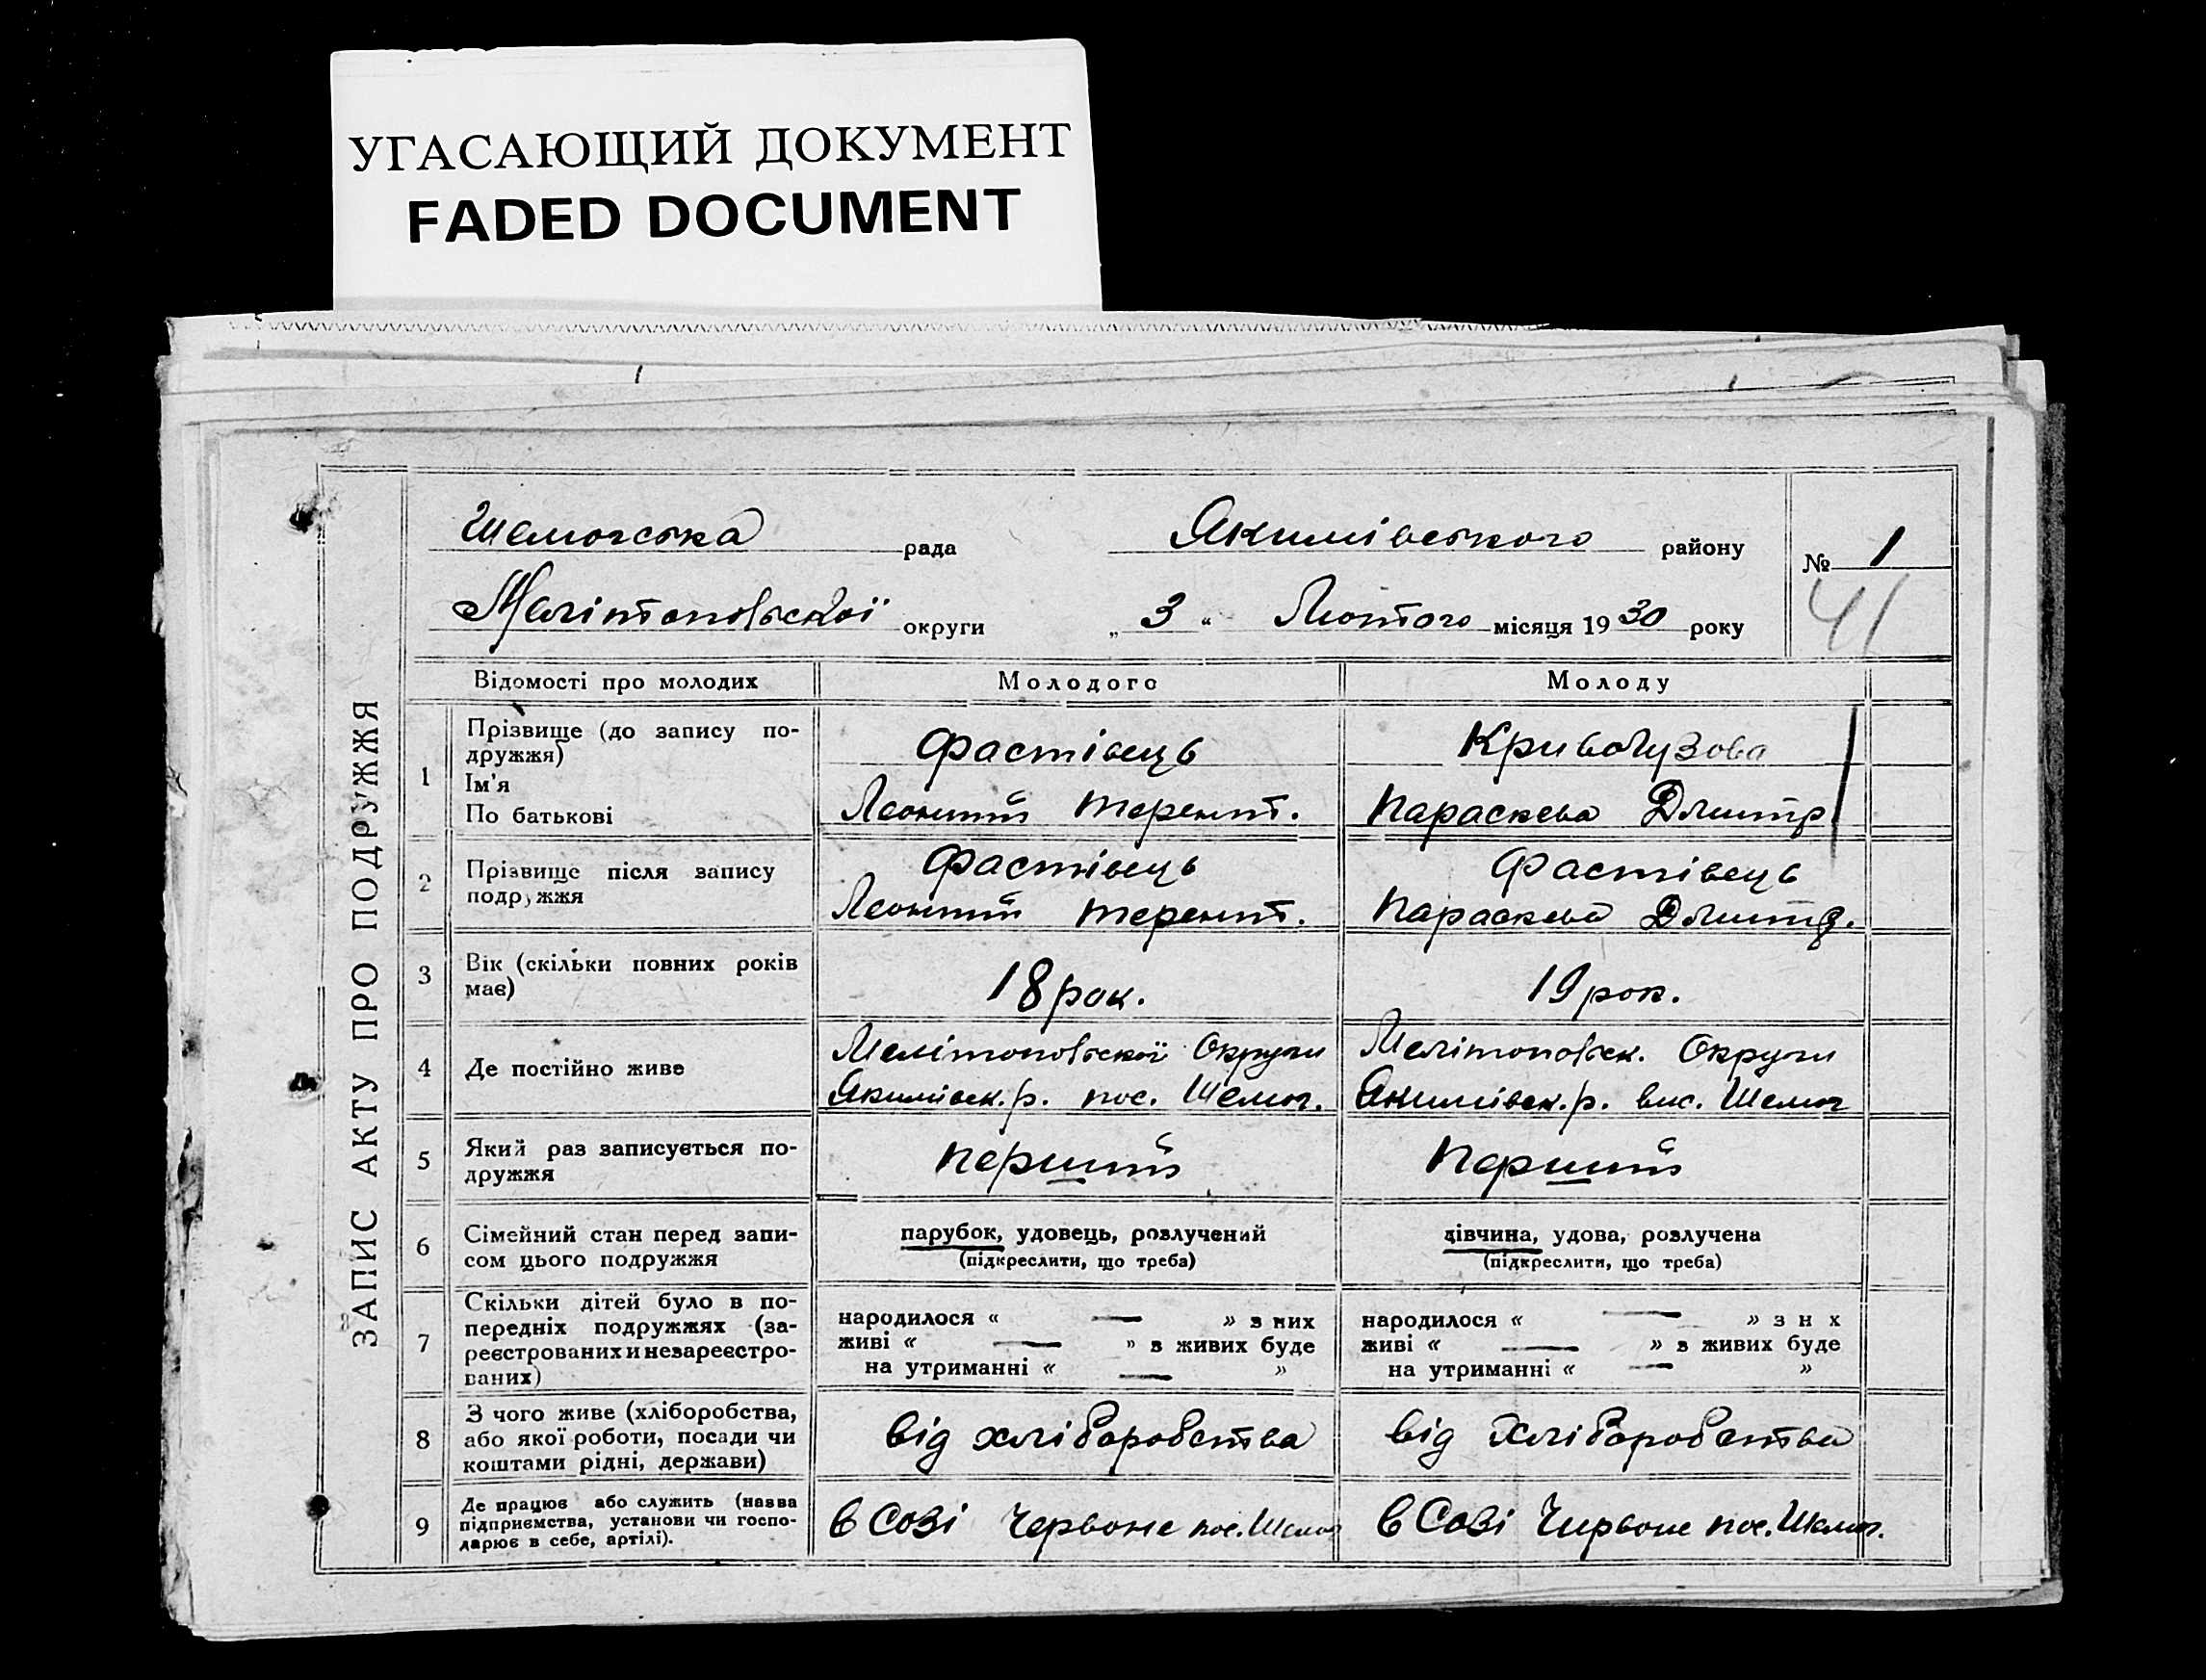 УГАСАЮЩИЙ ДОКУМЕНТ
FADED DOCUMENT
ЗАПИС АКТУ ПРО ПОДРУЖЖЯ
Шемогська рада Якимівського району № 1
Мелітопольскої округи „ 3 “ Лютого місяця 19 30 року 41
Відомості про молодих Молодого Молоду
1 Прізвище (до запису по-
дружжя) Фастівець Кривогузова
Ім'я
По батькові Леонтій Терент. Параскева Дмитр
2 Прізвище після запису Фастівець Фастівець
подружжя Леонтій Терент. Параскева Дмитр.
3 Вік (скільки повних років
має) 18 рок. 19 рок.
4 Де постійно живе Мелітопольскої Округи Мелітопольск. Округи
Якимівск. р. пос. Шемог. Якимівск. р. вис. Шемог
5 Який раз записується по-
дружжя перший перший
6 Сімейний стан перед запи- парубок, удовець, розлучений дівчина, удова, розлучена
сом цього подружжя (підкреслити, що треба) (підкреслити, що треба)
7 Скільки дітей було в по-
передніх подружжях (за-
реєстрованих и незареєстро-
ваних)
народилося « — » з них
живі « — » з живих буде
на утриманні « — »
народилося « — » з н х
живі « — » з живих буде
на утриманні « — »
8 З чого живе (хліборобства,
або якої роботи, посади чи
коштами рідні, держави) від хліборобства від хліборобства
9 Де працює або служить (назва
підприємства, установи чи госпо-
дарює в себе, артілі).
в Созі Червоне пос. Шемог в Созі Червоне пос. Шемог.